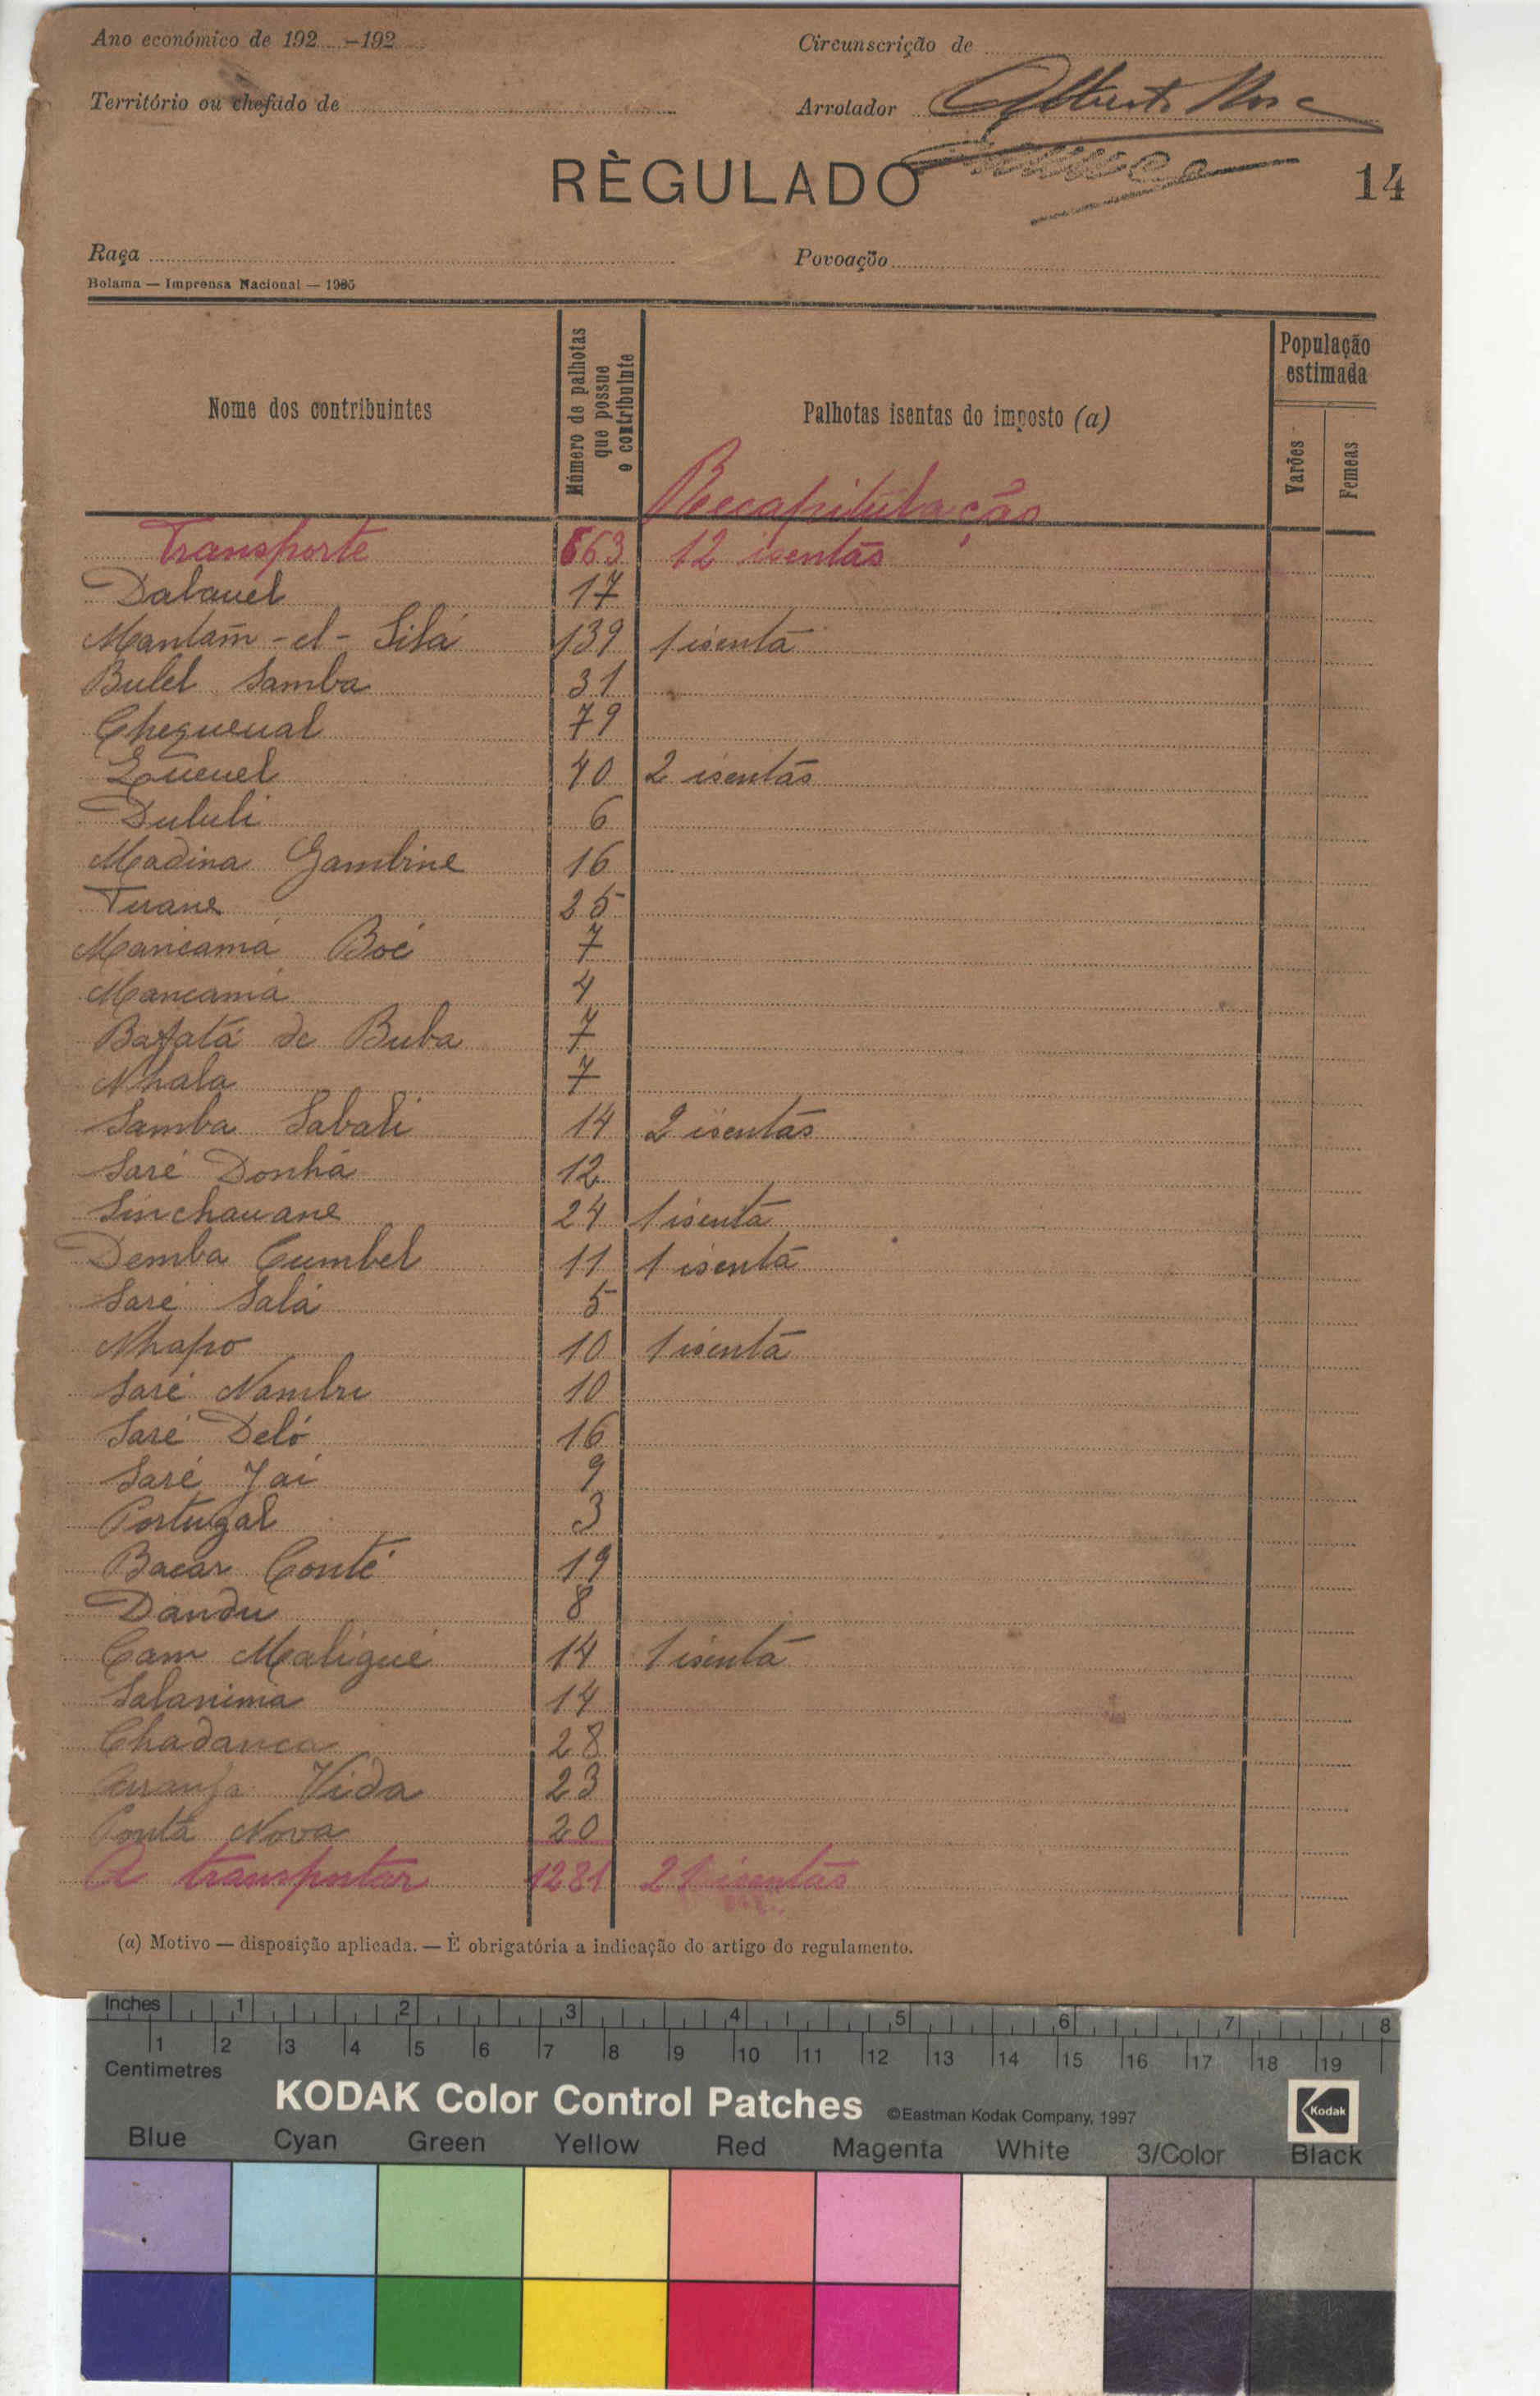 Ano económico de 192 -192
Circunscrição de
Território ou chefado de
Arrolador Alberto
RÈGULADO
14
Raça
Povoação
Bolama — Imprensa Nacional — 1925
Nome dos contribuintes
Número de palhotas que possue o contribuinte
Palhotas isentas do imposto (a)
População estimada
Varões
Femeas
Recapitulação
Transporte 663 12 isentas
Dabauel 17
Mantam-el-Silá 139 1 isenta
Bulel Samba 31
Chequeual 79
Gueuel 40 2 isentas
Dululi 6
Madina Gambine 16
Tuane 25
Mancamá Boé 7
Mancamá 4
Bafatá de Buba 7
Nhala 7
Samba Sabali 14 2 isentas
Saré Donhá 12
Sinchauane 24 1 isenta
Demba Cumbel 11 1 isenta
Saré Salá 5
Nhapo 10 1 isenta
Saré Nambu 10
Saré Deló 16
Saré Jai 9
Portugal 3
Bacar Conté 19
Dandu 8
Cam Maligué 14 1 isenta
Salanima 14
Chadanca 28
Vida 23
Ponta Nova 20
A transportar 1281 21 isentas
(a) Motivo — disposição aplicada. — É obrigatória a indicação do artigo do regulamento.
Inches 1 2 3 4 5 6 7 8
1 2 3 4 5 6 7 8 9 10 11 12 13 14 15 16 17 18 19
Centimetres
KODAK Color Control Patches ©Eastman Kodak Company, 1997 Kodak
Blue Cyan Green Yellow Red Magenta White 3/Color Black